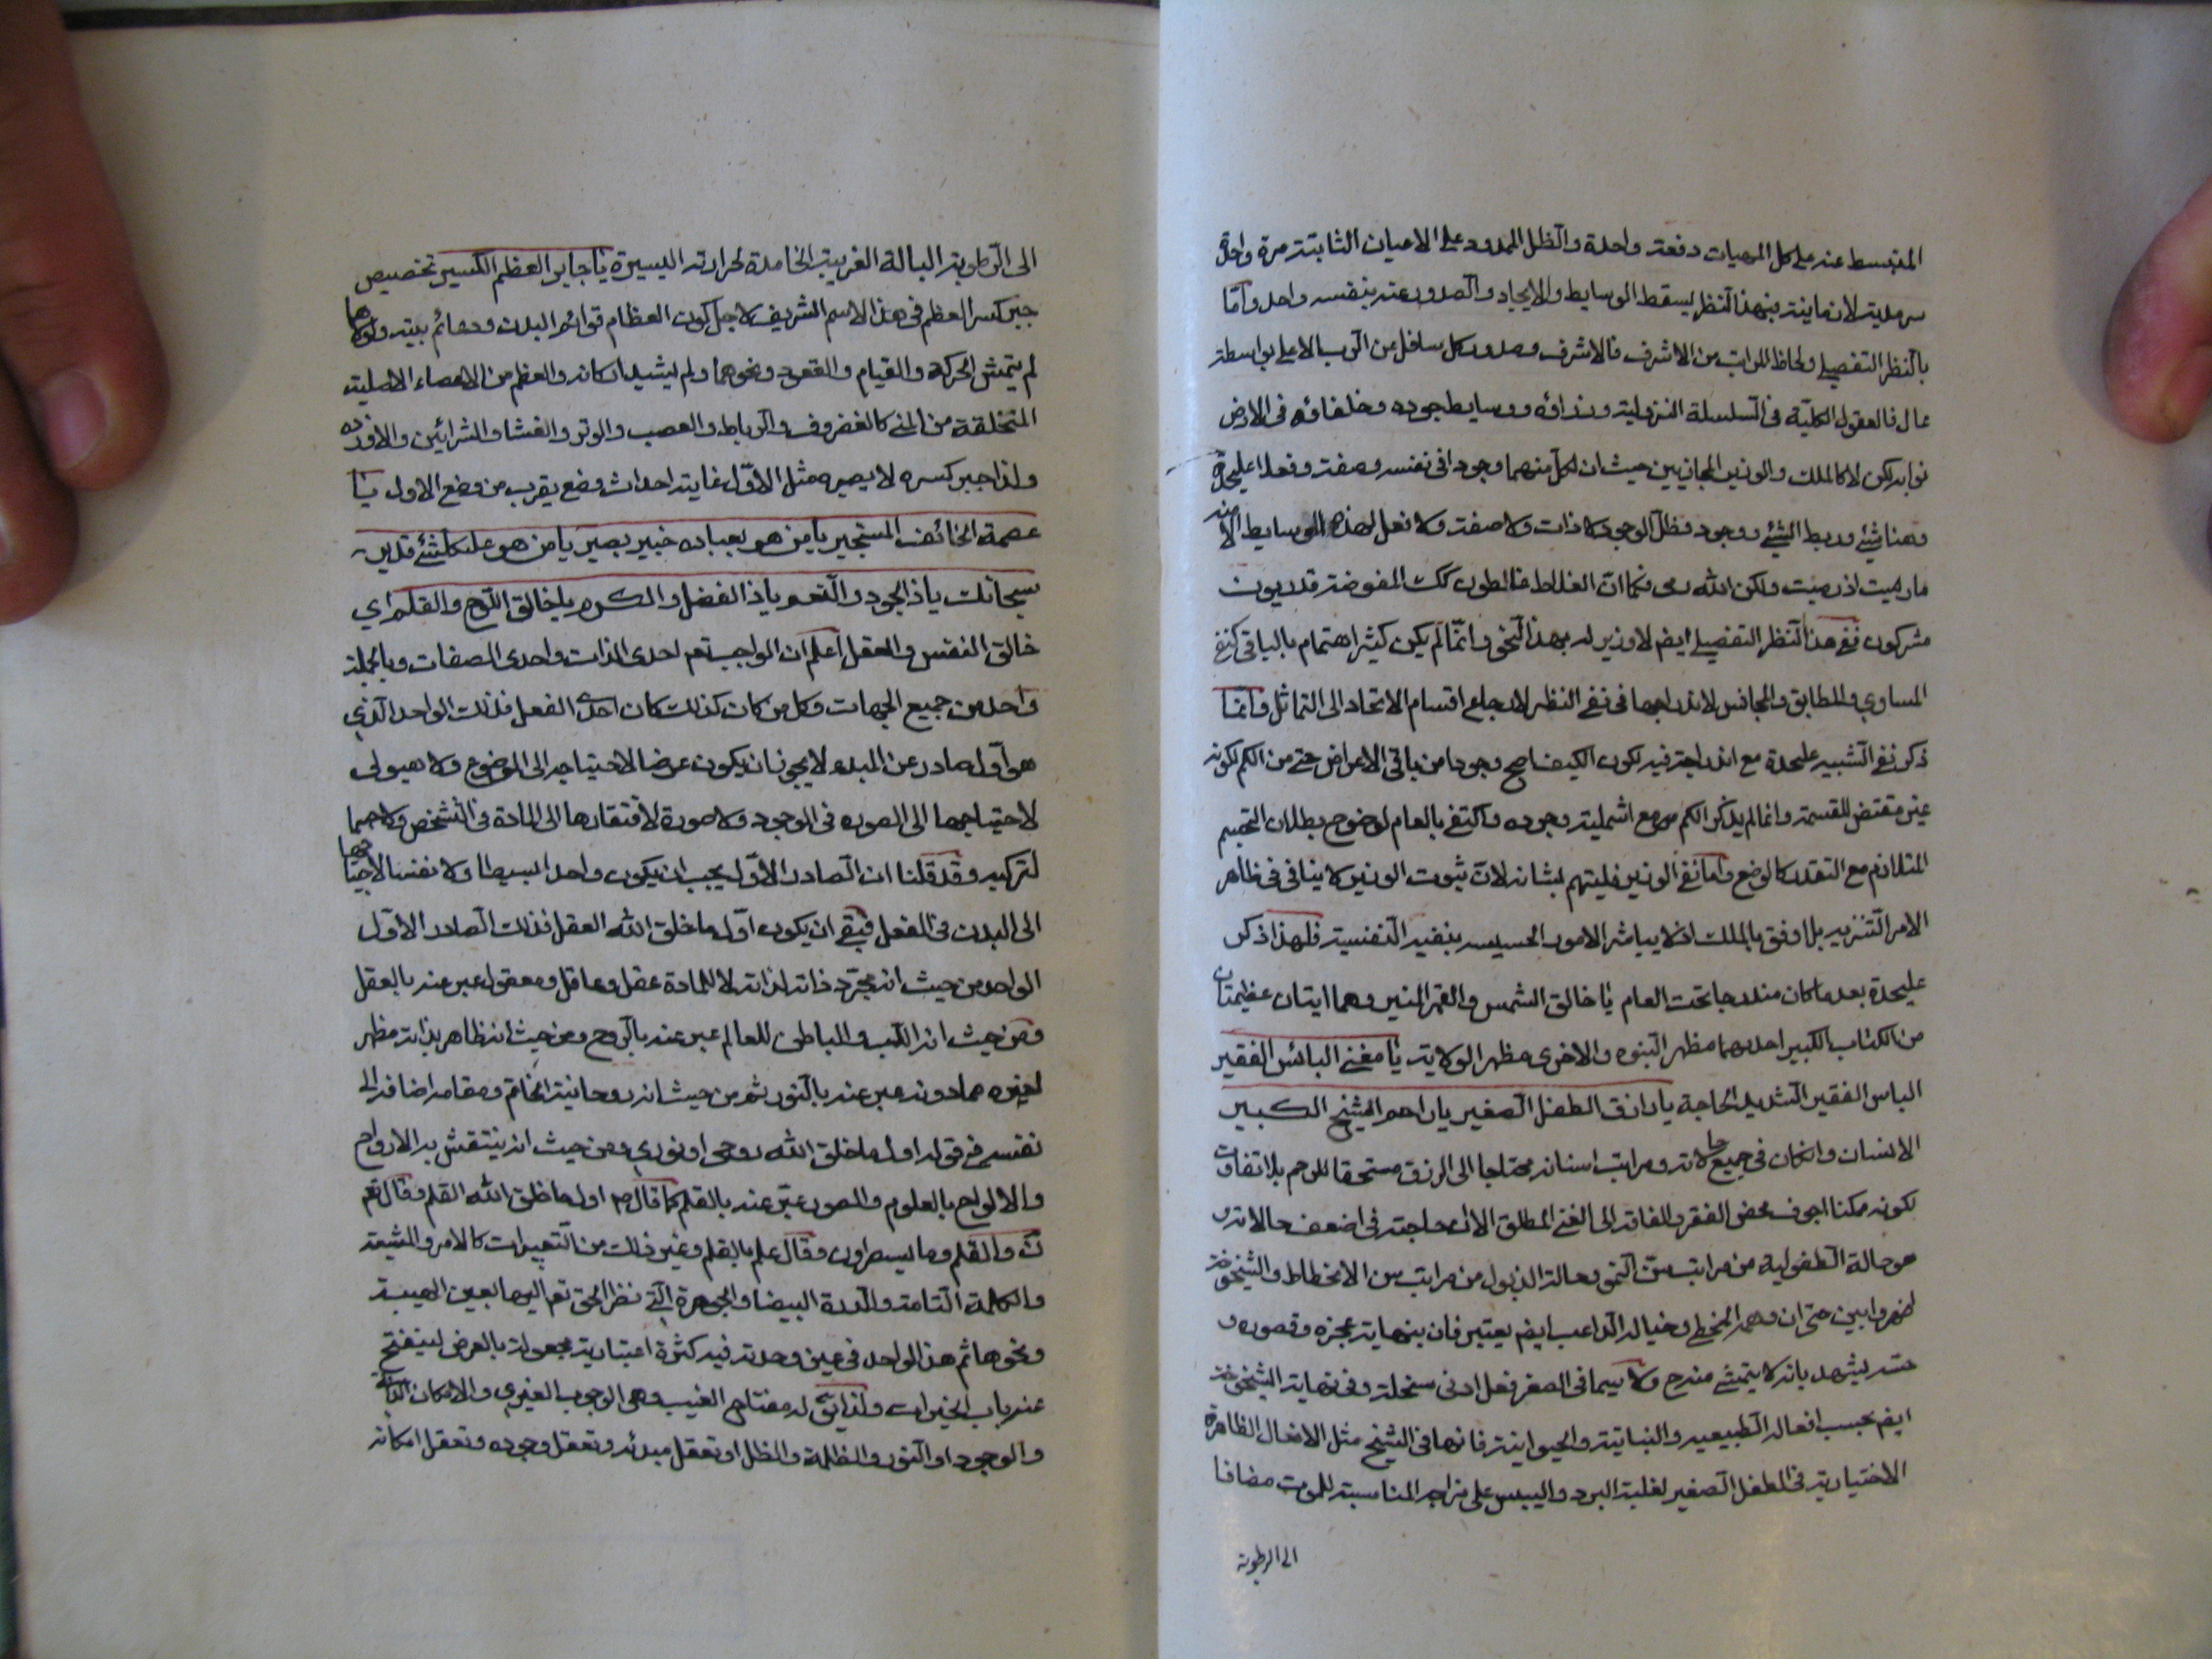 المنبسط عنه على كل المهيات دفعة واحدة والظل الممدود على الاعيان الثابتة مرة واحدة
سرمدية لا زمانية فبهذا النظر يسقط الوسايط والايجاد والصدور عنه بنفسه واحد واما
بالنظر التفصيلي ولحاظ المراتب من الاشرف فالاشرف وصدور كل سافل عن الرب الاعلى بواسطة
عال فالعقول الكلية في السلسلة النزولية وزراؤه ووسايط جوده وخلفاؤه في الارض
نوابه لكن لا كالملك والوزير المجازيين حيث ان لكل منهما وجودا في نفسه وصفة وفعلا عليحدة
وهنا شيء وربط الشيء ووجود وظل الوجود لا ذات ولا صفة ولا فعل لهذه الوسايط الا منه
مارميت اذ رميت ولكن الله رمى فكما ان الغلاط غالطون كك المفوضة قدريون
مشركون ففي هذا النظر التفصيلي ايضم لا وزير له بهذا النحو وانما لم يكن كثيرا اهتمام بالباقي كنفي
المساوي والمطابق والمجانس لاندراجها في نفي النظير لارجاع اقسام الاتحاد الى التماثل وانما
ذكر نفي الشبيه عليحدة مع اندراجه فيه لكون الكيف اصح وجودا من باقي الاعراض حتى من الكم لكونه
غير مقتض للقسمة وانما لم يذكر الكم مع اشملية وجوده واكتفى بالعام لوضوح بطلان التجسم
المتلازم مع التقدر كالوضع واما نفي الوزير فليتهم بشانه لان ثبوت الوزير لا ينافي في ظاهر
الامر التنزيه بل اوفق بالملك اذ لا يباشر الامور الخسيسه بنفسه النفسية فلهذا ذكر
عليحدة بعد ما كان مندرجا تحت العام يا خالق الشمس والقمر المنير وهما ايتان عظيمتان
من الكتاب الكبير احديهما مظهر النبوه والاخرى مظهر الولاية يا مغني البائس الفقير
البائس الفقير الشديد الحاجة يا رازق الطفل الصغير يا راحم الشيخ الكبير
الانسان وان كان في جميع حالاته ومراتب اسنانه محتاجا الى الرزق مستحقا للرحم بلا تفاوت
لكونه ممكنا اجوف محض الفقر والفاقة الى الغني المطلق الا ان حاجته في اضعف حالاته
هو حالة الطفولية من مراتب سن النمو وحالة الذبول من مراتب سن الانحطاط والشيخوخة
اظهر وابين حتى ان وهمه المخطي وخياله الداعب ايضم يعتبر فان بنهاية عجزه وقصوره و
يشهد بانه لا يتمشى منه ولا سيما في الصغر فعل ادنى سخلة وفي نهاية الشيخوخة
ايضم بحسب افعاله الطبيعيه والنباتية والحيوانية فانها في الشيخ مثل الافعال الظاهرة
الاختيارية في الطفل الصغير لغلبة البرد واليبس على مزاجه المناسبة للموت مضافا
الى الرطوبة
الى الرطوبة البالة الغريبة الخامدة لحرارته اليسيرة يا جابر العظم الكسير تخصيص
جبر كسر العظم في هذا الاسم الشريف لاجل كون العظام قوائم البدن ودعائم بيته ولولاها
لم يتمش الحركة والقيام والقعود ونحوهما ولم يشيد اركانه والعظم من الاعضاء الاصلية
المتخلقة من المني كالغضروف والرباط والعصب والوتر والغشا والشرائين والاورده
ولذا جبر كسره لا يصيره مثل الاول غايته احداث وضع يقرب من وضع الاول يا
عصمة الخائف المستجير يا من هو بعباده خبير بصير يا من هو على كل شيء قدير
سبحانك يا ذا الجود والنعم يا ذا الفضل والكرم يا خالق اللوح والقلم اي
خالق النفس والعقل اعلم ان الواجب تعم احدى الذات واحدى الصفات وبالجملة
واحد من جميع الجهات وكل من كان كذلك كان احدي الفعل فذلك الواحد الذي
هو اول صادر عن المبدء لا يجوز ان يكون عرضا لاحتياجه الى الموضوع ولا هيولى
لاحتياجها الى الصوره في الوجود ولا صورة لافتقارها الى المادة في التشخص ولا جسما
لتركبه وقد قلنا ان الصادر الاول يجب ان يكون واحدا بسيطا ولا نفسا لاحتياجها
الى البدن في الفعل فبقي ان يكون اول ما خلق الله العقل فذلك الصادر الاول
الواحد من حيث انه مجرد ذاته لذاته لا للمادة عقل وعاقل ومعقول عبر عنه بالعقل
ومن حيث انه اللب والباطن للعالم عبر عنه بالروح ومن حيث انه ظاهر بذاته مظهر
لغيره مما دونه عبر عنه بالنور ثم من حيث انه روحانية الخاتم ومقامه اضافه الى
نفسه في قوله اول ما خلق الله روحي او نوري ومن حيث انه ينتقش به الارواح
والالواح بالعلوم والصور عبر عنه بالقلم كما قال ص اول ما خلق الله القلم وقال تعم
ن والقلم وما يسطرون وقال علم بالقلم وغير ذلك من التعبيرات كالامر والمشية
والكلمة التامة والدرة البيضا والجوهرة التي نظر الحق تعم اليها بعين الهيبة
ونحوها ثم هذا الواحد في عين وحدته فيه كثرة اعتبارية مجعولة بالعرض لينفتح
عنه باب الخيرات ولذا يق له مفتاح الغيب وهي الوجوب الغيري والامكان الذاتي
والوجود او النور والظلمة والظل او تعقل مبدئه وتعقل وجوده وتعقل امكانه